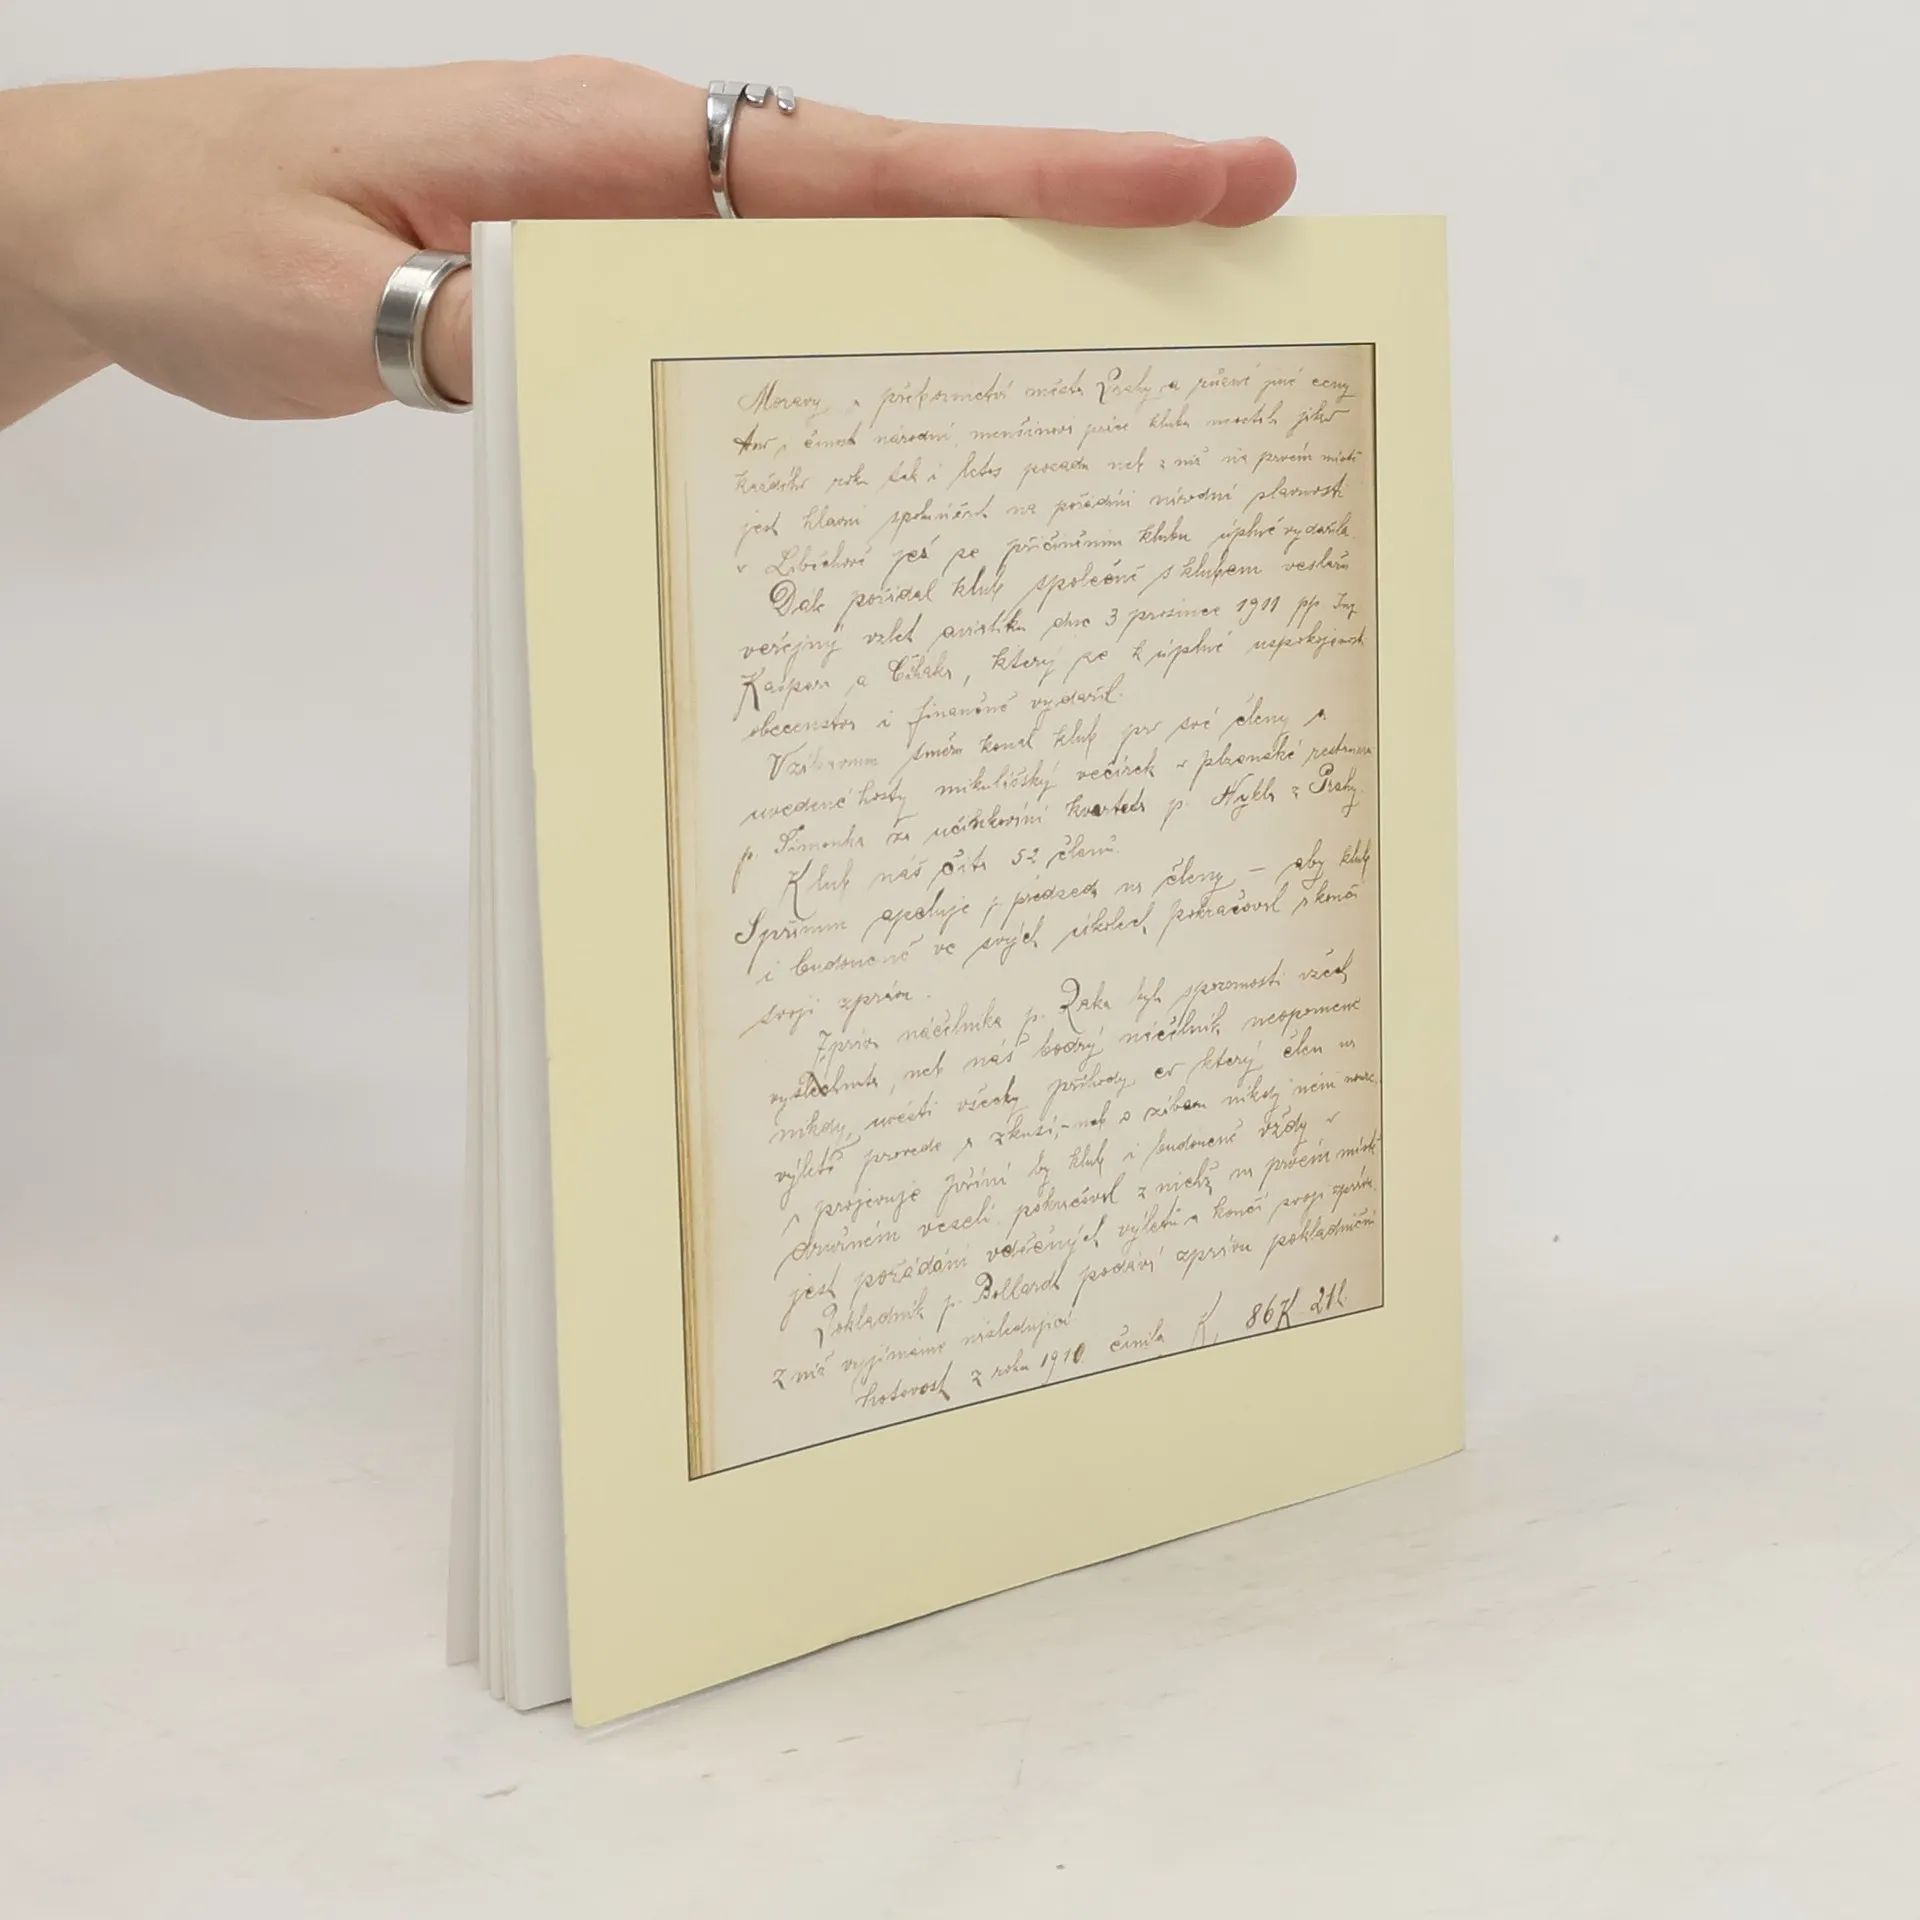 Moravy a přebornictví města Prahy a různé jiné ceny
činnost národní, menšinové práce klubu jako
každého roku tak i letos pořadu neb z nás na prvém místě
jest hlavní na pořádání národní slavnosti
v Liběchově jež se přičiněním klubu úplně vydařila.
Dále pořídal klub společně s klubem veslařů
veřejný vzlet aviatiku dne 3 prosince 1911 pp Ing
Kašpara a Čiháka, který se k úplné uspokojenosti
obecenstva i finančně vydařil.
směru konal klub pro své členy a
uvedené hosty mikulášský večírek v plzeňské restauraci
p. Šimonka za učinkování kvarteta p. Hykla z Prahy.
Klub náš čítá 52 členů.
apeluje p. předseda na členy — aby klub
i budoucně ve svých úkolech pokračoval a končí
svoji zprávu.
Zpráva náčelníka p. Raka byla spozorností všech
vyslechnuta, neb náš bodrý náčelník neopomene
nikdy, učísti všecky příhody co který člen na
výletě provede a zkusí, - neb o zábavu nikdy není nouze
a projevuje přání by klub i budoucně vždy v
družném veselí pokračoval z nichž na prvém místě
jest pořádání vděčných výletů a končí svoji zprávu.
Pokladník p. Bollardt podává zprávu pokladniční
z níž vyjímáme následující
hotovost z roku 1910 činila K, 86 K 21 h.